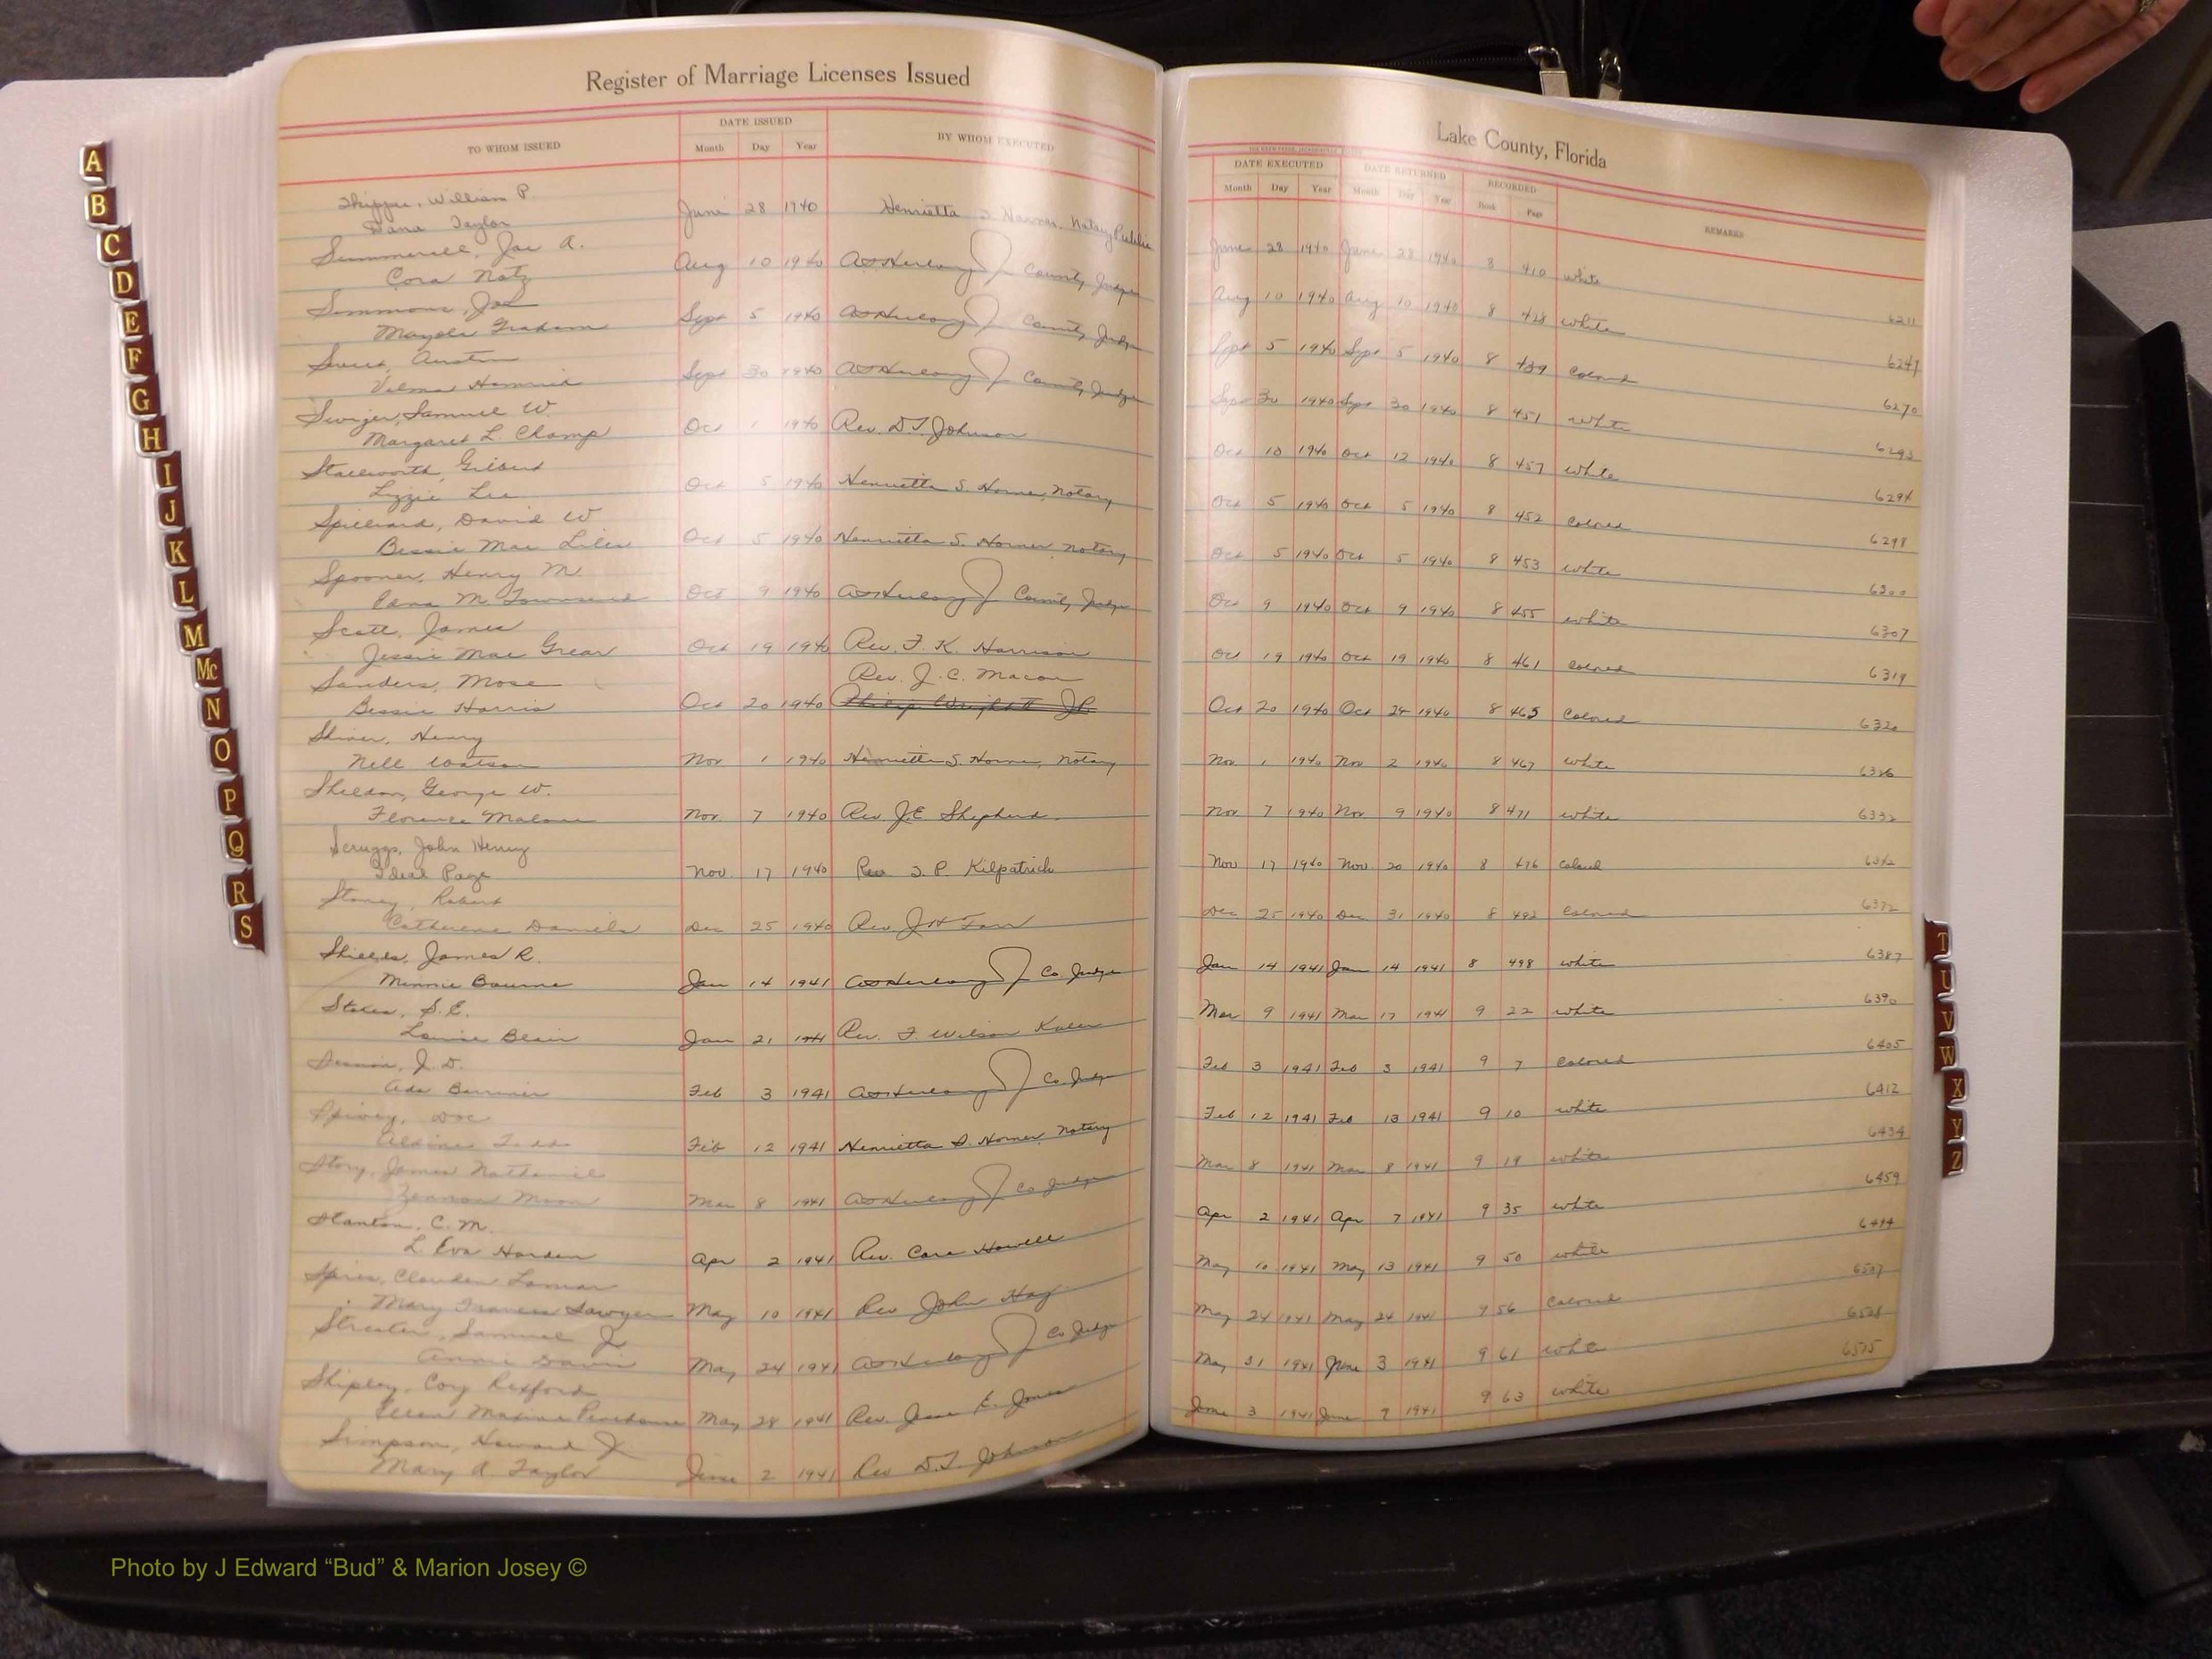 Register of Marriage Licenses Issued
TO WHOM ISSUED
DATE ISSUED
Month Day Year
BY WHOM EXECUTED
Skipper, William P.
Taylor June 28 1940 Henrietta S. Notary Public
Summerell, Joe A.
Cora Aug 10 1940 County Judge
Simmons, Joe
Graham Sept 5 1940 County Judge
Sweet, Austin
Velma Sept 30 1940 County Judge
Samuel W.
Margaret L. Champ Oct 1 1940 Rev. D.T. Johnson
Stallworth, Gilbert
Lizzie Lee Oct 5 1940 Henrietta S. Horner, Notary
David W
Bessie Mae Liles Oct 5 1940 Henrietta S. Horner, Notary
Spooner, Henry M.
M. Townsend Oct 9 1940 County Judge
Scott, James
Jessie Mae Grear Oct 19 1940 Rev. F. K. Harrison
Sanders, Mose Rev. J. C. Macon
Bessie Harris Oct 20 1940
Henry
Nell Watson Nov 1 1940 Henrietta S. Horner, Notary
Sheldon, George W.
Florence Malone Nov. 7 1940 Rev. J.E. Shepherd
Scruggs, John Henry
Ideal Page Nov. 17 1940 Rev. S. P. Kilpatrick
Robert
Catherine Daniels Dec 25 1940 Rev. J H
Shields, James R.
Minnie Bourne Jan 14 1941 Co Judge
Stokes, S.E.
Louise Blair Jan 21 1941 Rev. F. Wilson
J. D.
Ada Feb 3 1941 Co Judge
Spivey, Doc
Todd Feb 12 1941 Henrietta S. Horner, Notary
Story, James Nathaniel
Moon Mar 8 1941 Co Judge
Stanton, C. M.
L. Eva Harden Apr 2 1941 Rev. Howell
Spires, Lamar
Mary Sawyer May 10 1941 Rev John Hag
Streater, Samuel Jr
Annie May 24 1941 Co Judge
Shipley, Coy Rexford
Maxine May 28 1941 Rev. Jesse E. Jones
Simpson, Howard J.
Mary A Taylor June 2 1941 Rev D.T. Johnson
Lake County, Florida
DATE EXECUTED
DATE RETURNED
RECORDED
Month Day Year Month Day Year Book Page
REMARKS
June 28 1940 June 28 1940 8 410 white
6211
Aug 10 1940 Aug 10 1940 8 428 white
6247
Sept 5 1940 Sept 5 1940 8 439 Colored
6270
Sept 30 1940 Sept 30 1940 8 451 white
6293
Oct 10 1940 Oct 12 1940 8 457 white
6294
Oct 5 1940 Oct 5 1940 8 452 Colored
6298
Oct 5 1940 Oct 5 1940 8 453 white
6300
Oct 9 1940 Oct 9 1940 8 455 white
6307
Oct 19 1940 Oct 19 1940 8 461 Colored
6319
Oct 20 1940 Oct 24 1940 8 465 Colored
6320
Nov. 1 1940 Nov. 2 1940 8 467 white
Nov 7 1940 Nov 9 1940 8 471 white
6332
Nov 17 1940 Nov. 20 1940 8 476 Colored
Dec 25 1940 Dec 31 1940 8 492 Colored
6372
Jan 14 1941 Jan 14 1941 8 498 white
6387
Mar 9 1941 Mar 17 1941 9 22 white
6390
Feb 3 1941 Feb 3 1941 9 7 Colored
6405
Feb 12 1941 Feb 13 1941 9 10 white
6412
Mar 8 1941 Mar 8 1941 9 19 white
6434
Apr 2 1941 Apr 7 1941 9 35 white
6459
May 10 1941 May 13 1941 9 50 white
6494
May 24 1941 May 24 1941 9 56 Colored
6507
May 31 1941 June 3 1941 9 61 white
June 3 1941 June 9 1941 9 63 white
A
B
C
D
E
F
G
H
I
J
K
L
M
Mc
N
O
P
Q
R
S
T
U
V
W
X
Y
Z
Photo by J Edward “Bud” & Marion Josey ©